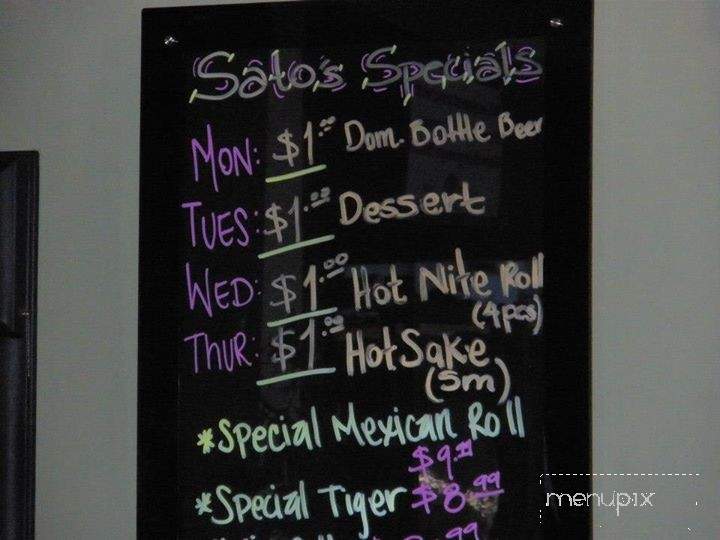 Sato's Specials
MON: $1.00 Dom. Bottle Beer
TUES: $1.00 Dessert
WED: $1.00 Hot Nite Roll
(4pcs)
THUR: $1.00 Hot Sake
(Sm)
*Special Mexican Roll
$9.
*Special Tiger $8.99
99
menupix